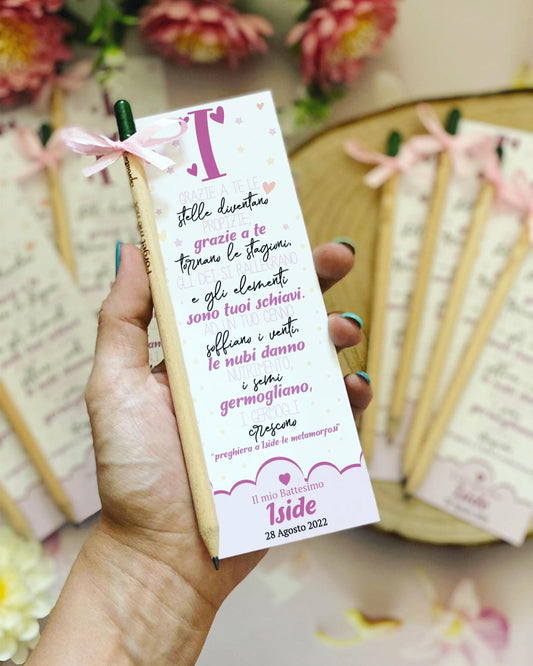 I
GRAZIE A TE LE
stelle diventano
PROPIZIE,
grazie a te
tornano le stagioni,
GLI DEI SI RALLEGRANO
e gli elementi
sono tuoi schiavi.
AD UN TUO CENNO
soffiano i venti,
le nubi danno
NUTRIMENTO,
i semi
germogliano,
I GERMOGLI
crescono
"preghiera a Iside-le metamorfosi"
Il mio Battesimo
Iside
28 Agosto 2022